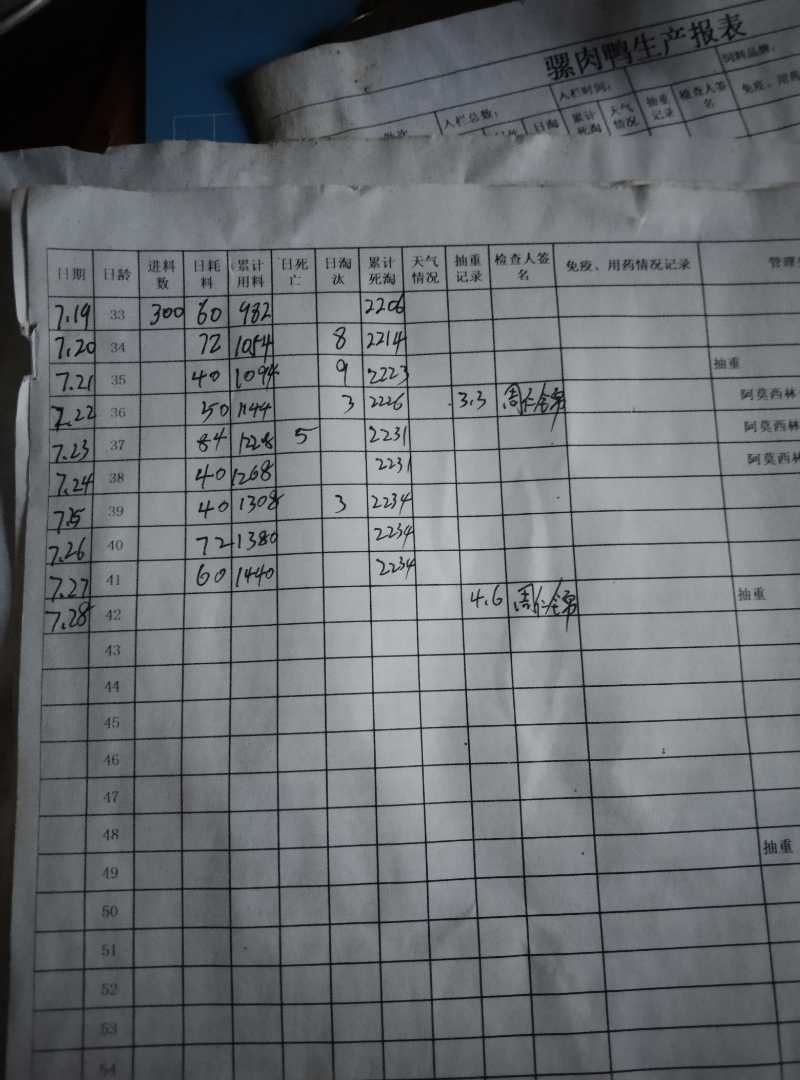 骡肉鸭生产报表
入栏总数： 入栏时间： 饲料品牌：
日淘 累计死淘 天气情况 抽重记录 检查人签名 免疫、用药
日期 日龄 进料数 日耗料 累计用料 日死亡 日淘汰 累计死淘 天气情况 抽重记录 检查人签名 免疫、用药情况记录 管理
7.19 33 300 60 982 2206
7.20 34 72 1054 8 2214
7.21 35 40 1094 9 2223 抽重
7.22 36 50 1144 3 2226 3.3 阿莫西林
7.23 37 84 1228 5 2231 阿莫西林
7.24 38 40 1268 2231 阿莫西林
7.25 39 40 1308 3 2234
7.26 40 72 1380 2234
7.27 41 60 1440 2234
7.28 42 4.6 抽重
43
44
45
46
47
48
49 抽重
50
51
52
53
54